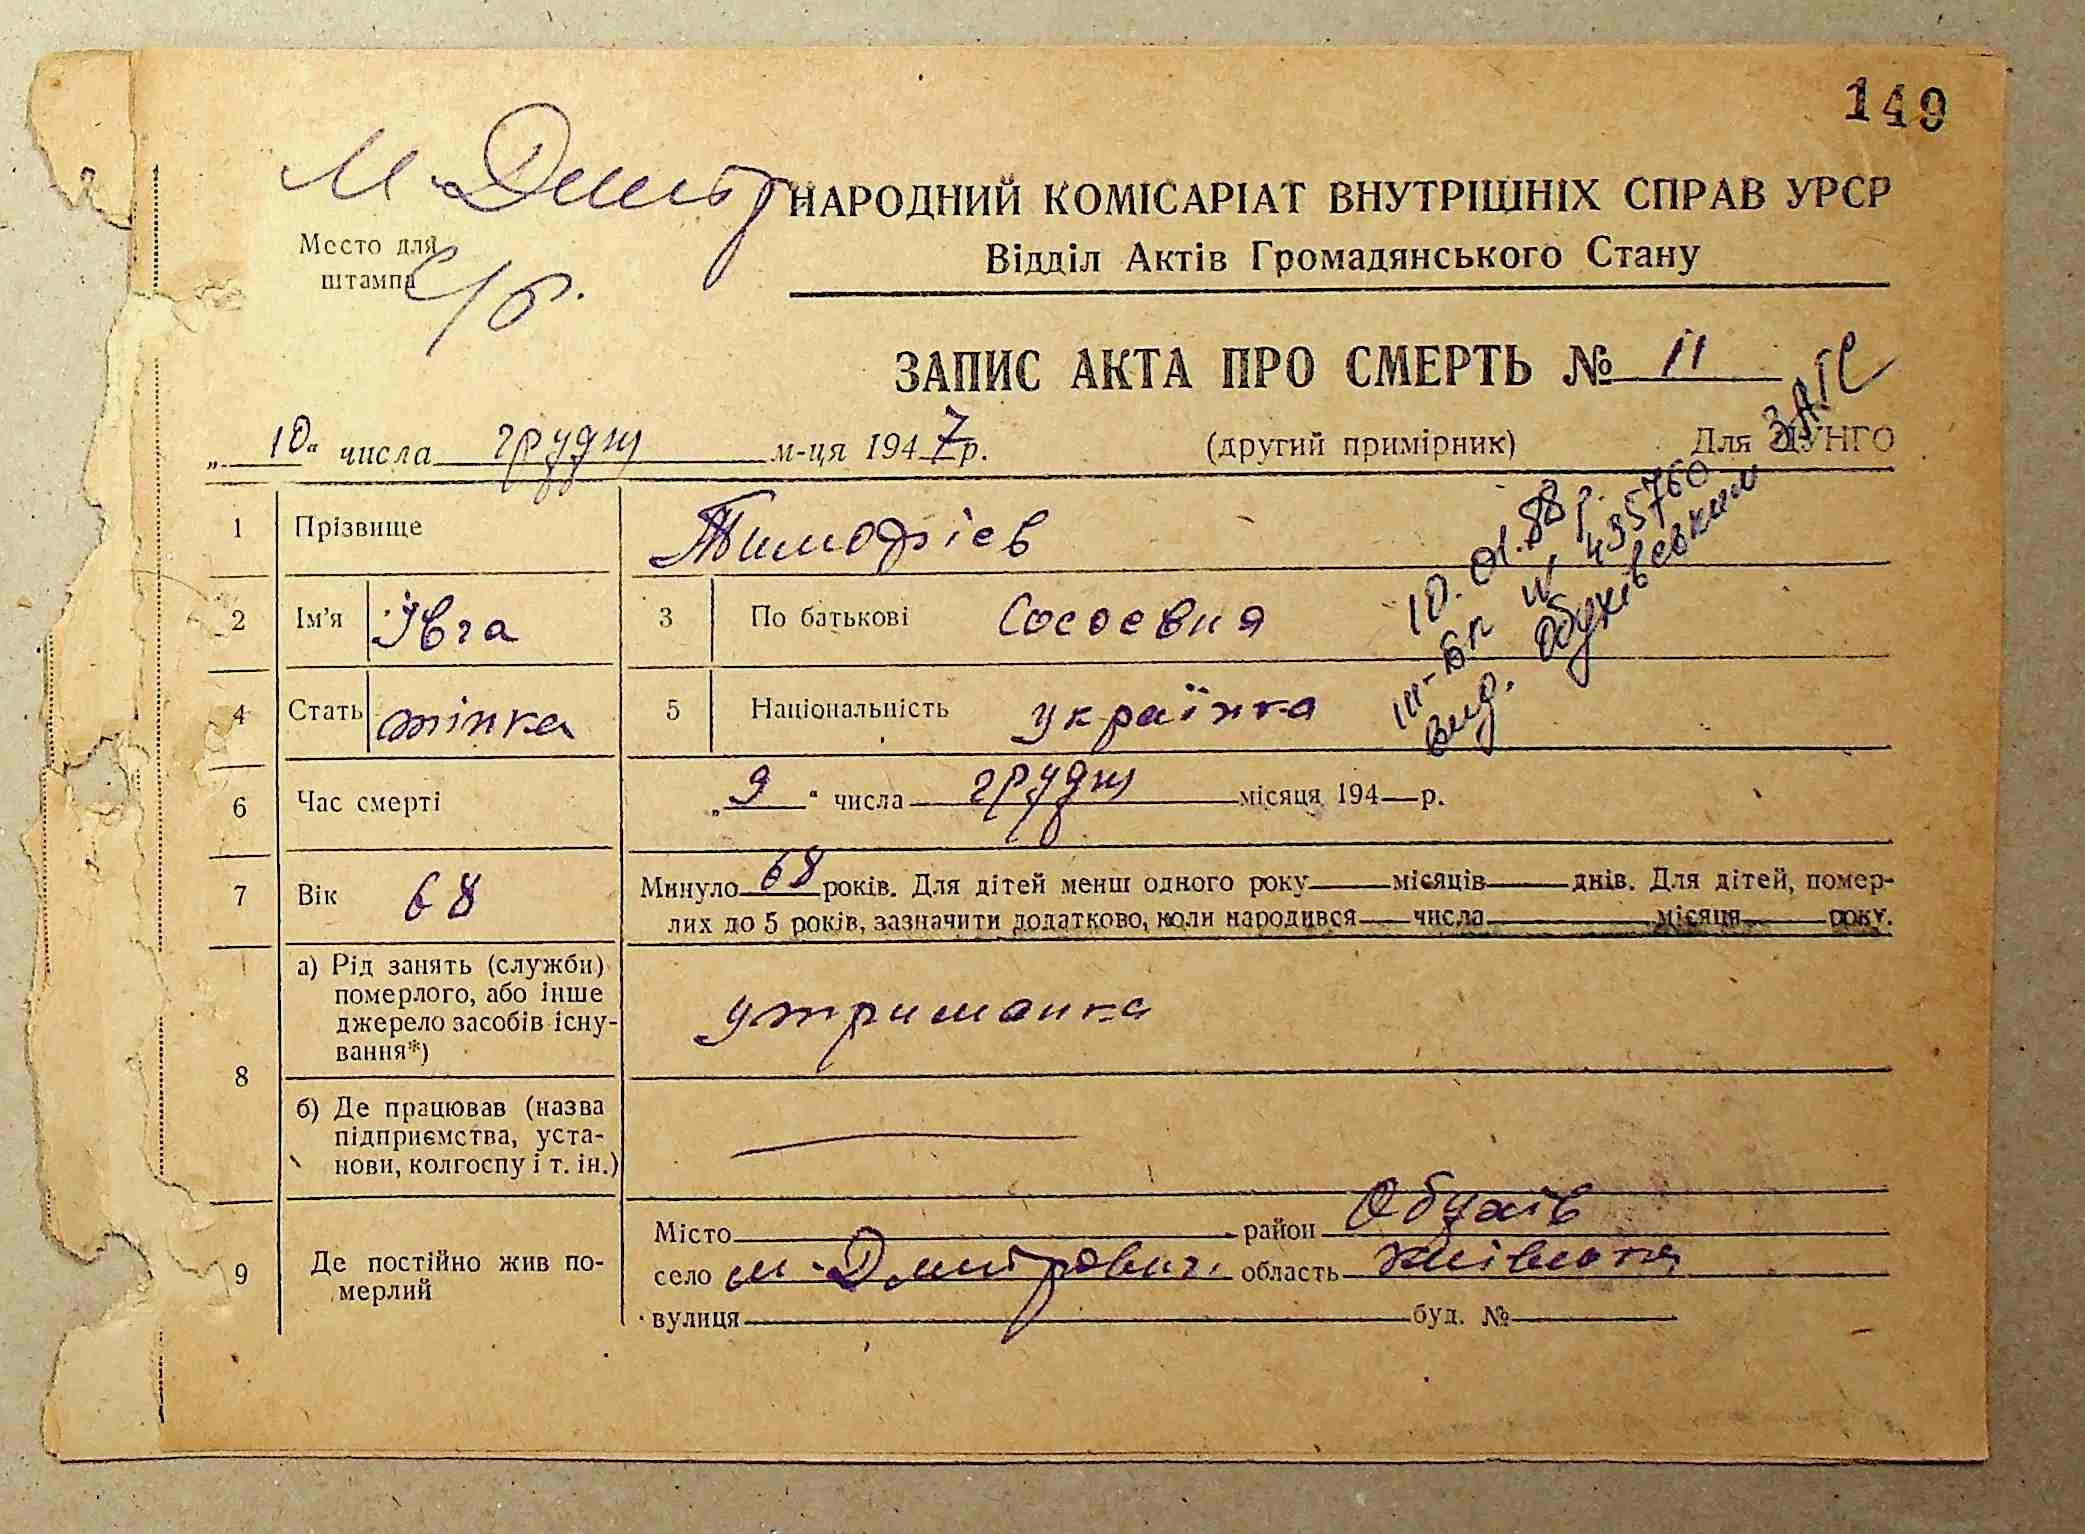 149
М-Дмитр
НАРОДНИЙ КОМІСАРІАТ ВНУТРІШНІХ СПРАВ УРСР
Место для
штампа
с/р.
Відділ Актів Громадянського Стану
ЗАПИС АКТА ПРО СМЕРТЬ № 11
„10" числа грудня м-ця 1947 р. (другий примірник) Для ЦУНГО
ЗАГС
10.01.88 р.
ІІІ-БК № 435760
вид. Обухівським
1 Прізвище Тимофієв
2 Ім'я Івга 3 По батькові Сосоєвна
4 Стать жінка 5 Національність українка
6 Час смерті „9" числа грудня місяця 194—р.
7 Вік 68 Минуло 68 років. Для дітей менш одного року — місяців — днів. Для дітей, помер-
лих до 5 років, зазначити додатково, коли народився — числа — місяця — року.
8 а) Рід занять (служби)
померлого, або інше
джерело засобів існу-
вання*)
утриманка
б) Де працював (назва
підприємства, уста-
нови, колгоспу і т. ін.)
9 Де постійно жив по-
мерлий
Місто район Обухів
село М-Дмитрович. область Київська
вулиця буд. №